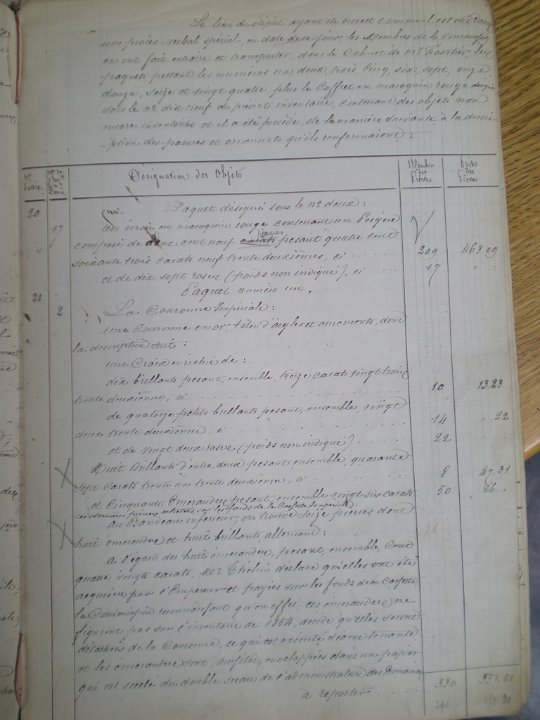 Le lieu de dépôt ayant été ouvert comment est dit au
procès-verbal spécial, en date de ce jour, les Membres de la Commission
en ont fait extraire et transporter, dans le Cabinet de Mr les
paquets portant les numéros un, deux, trois, cinq, six, sept, onze,
douze, seize et vingt quatre, plus le Coffre en maroquin rouge
sous le No dix neuf du présent inventaire, contenant des objets non
encore inventoriés et il a été procédé, de la manière suivante à la descrip-
ption des parures et ornements qu'ils renfermaient:
Désignation des Objets
Nombre des Pierres
Poids des Pierres
20
Paquet désigné sous le No deux:
17
un écrin en maroquin rouge contenant un Peigne
composé de deux cent neuf carats pesant quatre cent
soixante trois carats neuf trente deuxièmes, ci 209 463.09
et de dix sept roses (poids non indiqué), ci 17
Paquet numéro un.
21 2
La Couronne Impériale:
une Couronne en or, tête d'aigles et ornements, dont
la description suit:
une Croix enrichie de:
dix brillants pesant, ensemble, treize carats vingt trois
trente deuxièmes, ci 10 13.23
de quatorze petits brillants pesant, ensemble, vingt
deux trente deuxièmes ci 14 22
et de vingt deux roses (poids non indiqué) 22
Huit Brillants d'entre deux pesant ensemble quarante
sept carats trente un trente deuxièmes, ci 8 47.31
et Cinquante émeraudes pesant, ensemble vingt six carats 50 26
sur les fonds de la Cassette Impériale
au Bandeau inférieur, on trouve seize pierres dont
huit émeraudes et huit brillants alternant:
à l'égard des huit émeraudes, pesant ensemble Cent
quatre vingts carats, Mr Thélin déclare qu'elles ont été
acquises par l'Empereur et payées sur les fonds de sa Cassette,
la Commission reconnaissant qu'en effet, ces émeraudes ne
figurent pas sur l'inventaire de 1854, décide qu'elles seront
détachées de la Couronne, ce qui est exécuté séance tenante
et les émeraudes sont, ensuite, enveloppées dans un papier
qui est scellé du double sceau de l'administration des Domaines
à reporter 330